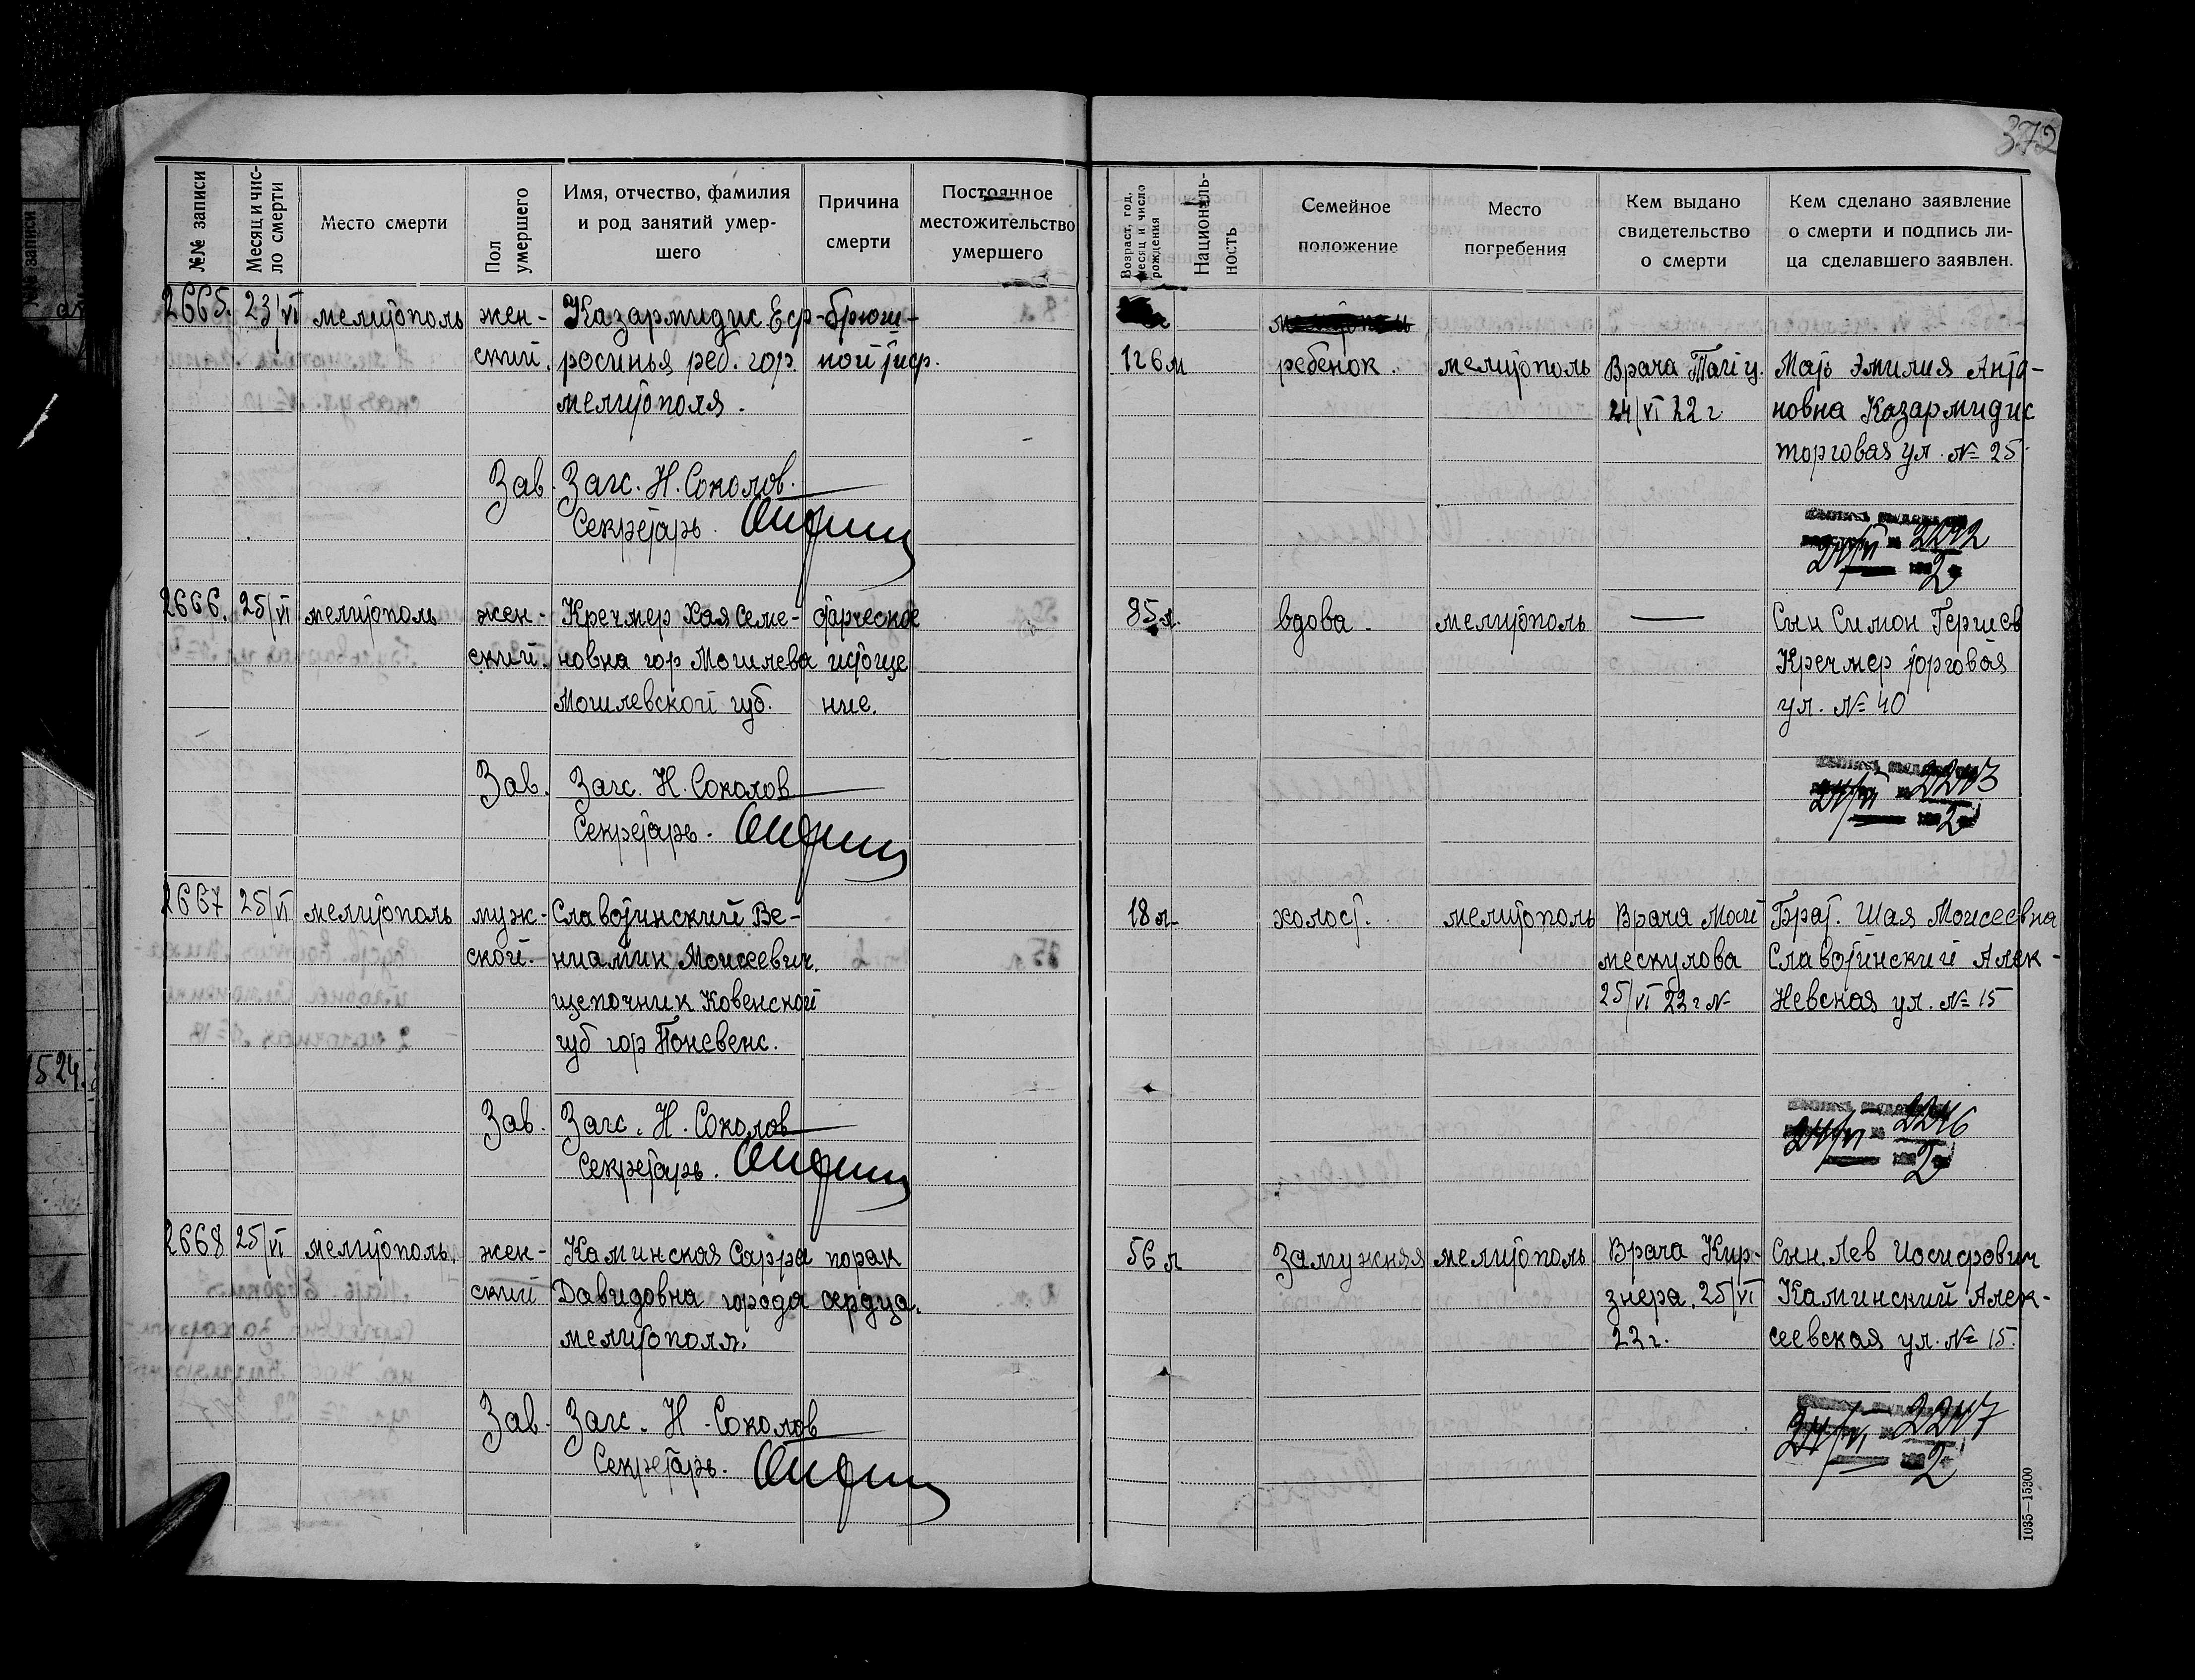 372
№№ записи
Месяц и чис-
ло смерти
Место смерти
Пол
умершего
Имя, отчество, фамилия
и род занятий умер-
шего
Причина
смерти
Постоянное
местожительство
умершего
Возраст, год,
месяц и число
рождения
Националь-
ность
Семейное
положение
Место
погребения
Кем выдано
свидетельство
о смерти
Кем сделано заявление
о смерти и подпись ли-
ца сделавшего заявлен.
2665. 23/VI мелитополь жен- Казармидис Еф- брюш-
ский. росинья реб. гор. ной тиф. 1 г 6 м ребенок. мелитополь Врача Мать Эмилия Анто-
мелитополя. 24/VI 22 г. новна Казармидис
торговая ул. № 25.
Зав. Загс. Н. Соколов.
Секретарь.
2242
2666. 25/VI мелитополь жен- Кречмер Хая Семе- старческое 85 л. вдова. мелитополь — Сын Симон Гершев
ский. новна гор Могилева истоще Кречмер торговая
Могилевской губ. ние. ул. № 40
Зав. Загс. Н. Соколов
Секретарь.
2243
2667 25/VI мелитополь муж- Славотинский Ве- 18 л. холост. мелитополь Врача Брат. Шая Моисеевна
ской. ниамин Моисеевич. мескулова Славотинский Алек-
щепочник Ковенской 25/VI 22 г № Невская ул. № 15
губ гор Поневенс.
Зав. Загс. Н. Соколов
Секретарь.
2246
2668 25/VI мелитополь. жен- Каминская Сарра порок 56 л замужняя мелитополь Врача Кир- Сын. Лев Иосифович
ский Давидовна города сердца. знера. 25/VI Каминский Алек-
мелитополя. 22 г. сеевская ул. № 15.
Зав. Загс. Н. Соколов
Секретарь.
2247
1035—15300
1524.